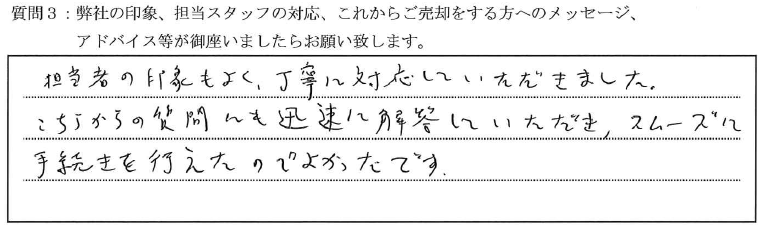 質問３：弊社の印象、担当スタッフの対応、これからご売却をする方へのメッセージ、
アドバイス等が御座いましたらお願い致します。
担当者の印象もよく、丁寧に対応していただきました。
こちらからの質問にも迅速に解答していただき、スムーズに
手続きを行えたのでよかったです.